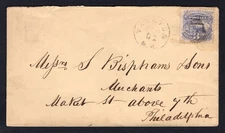 Messrs S Bispham & Sons
Merchants
Market St above 7th
Philadelphia